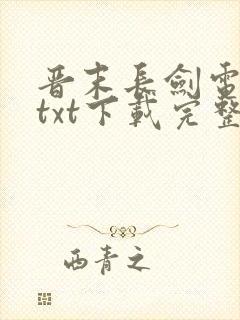 晋末长剑電
txt下載完整
西青之